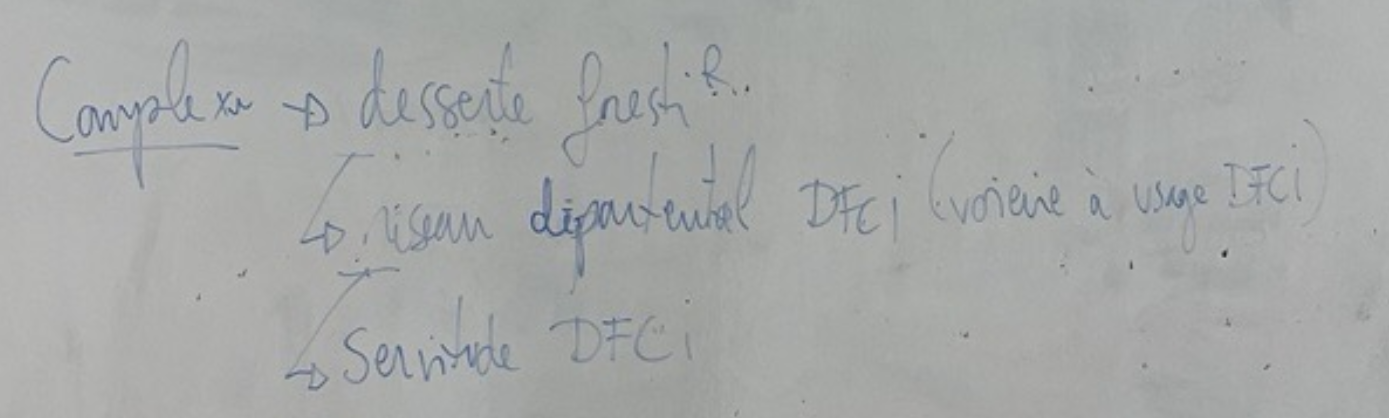 → desserte forestiR.
↳ réseau départemental DFCi (voirie à usage DFCi)
↳ Servitude DFCi